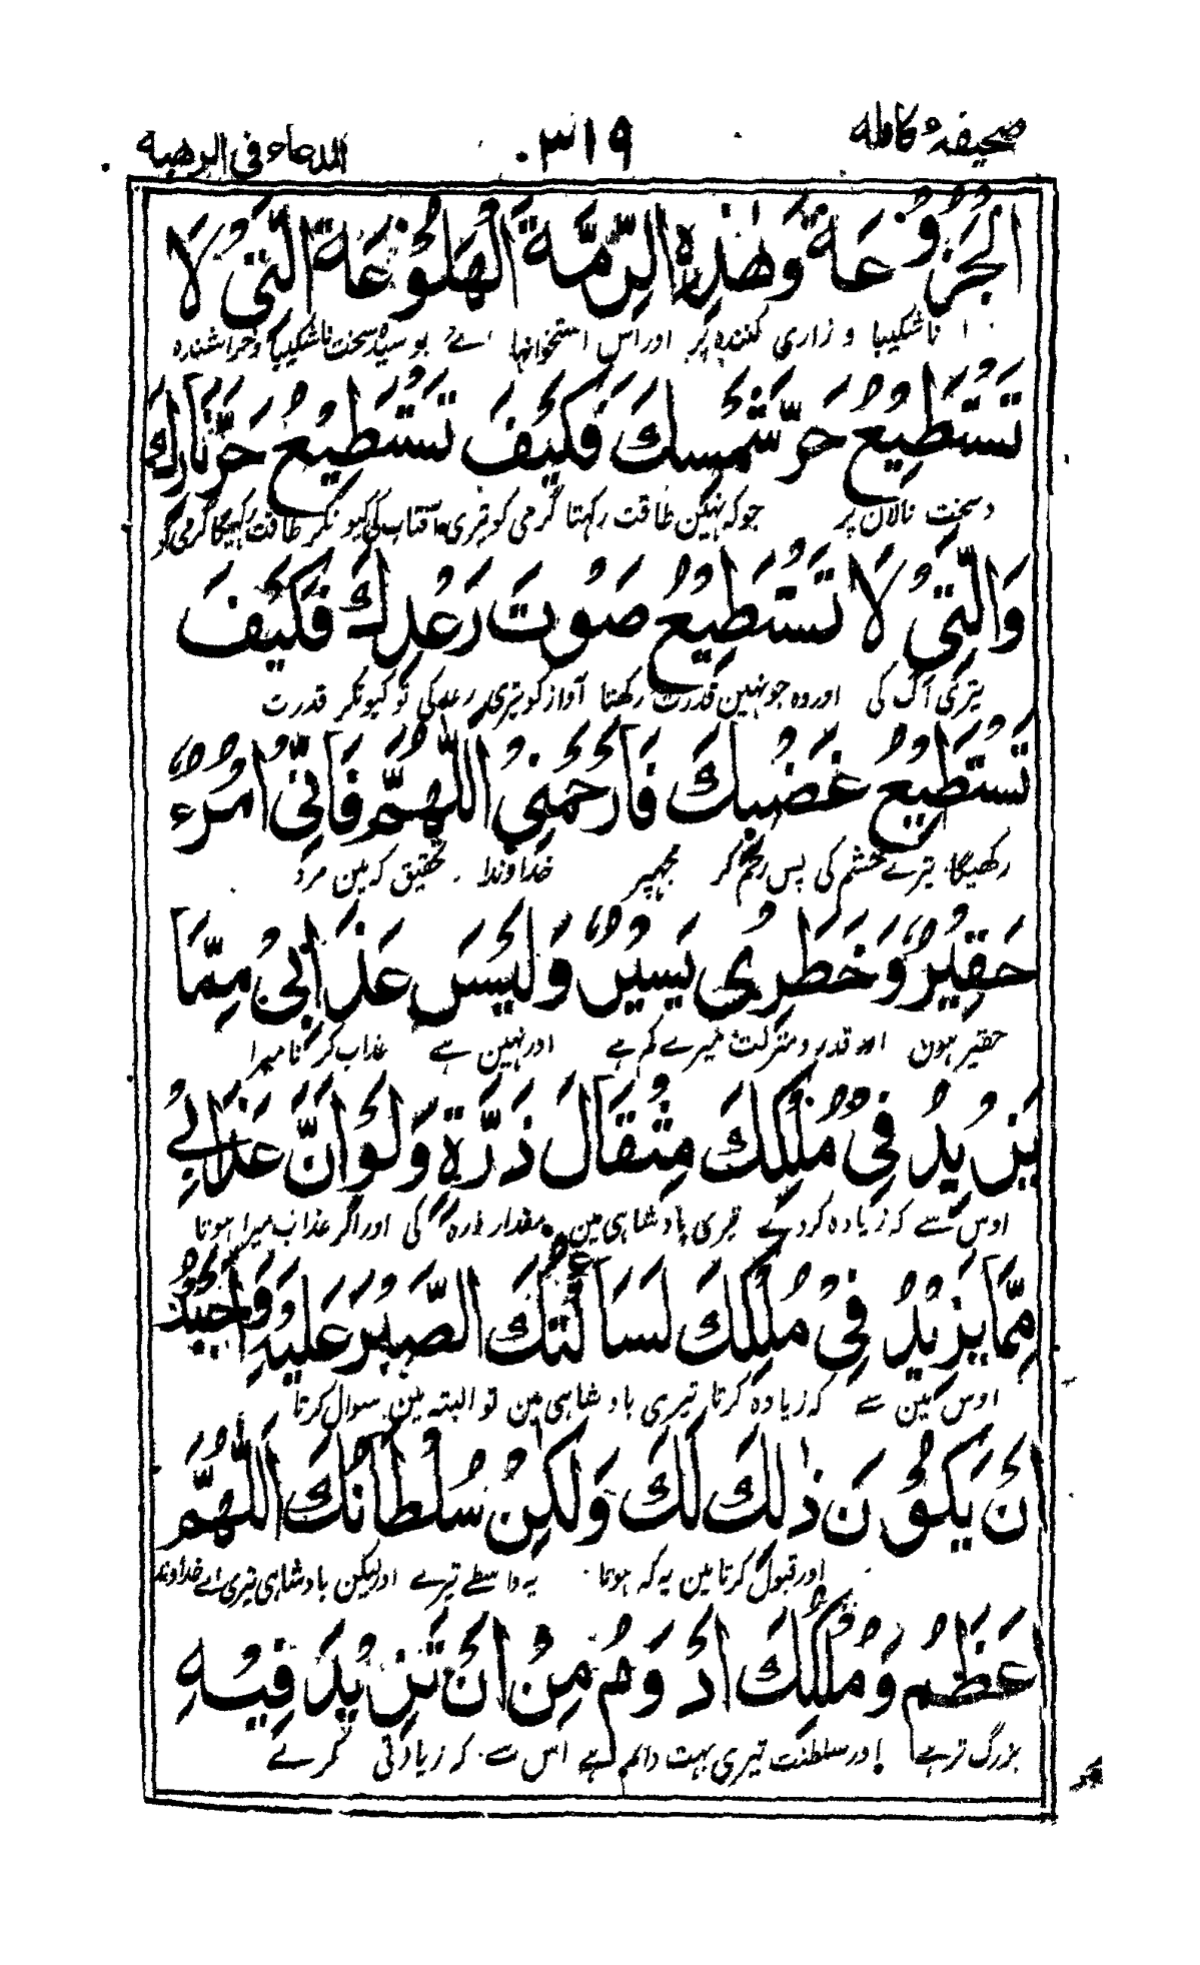 صحیفہ کاملہ ۳۱۹ الدعاء فی الرهبه
الْجَزُوْعَةَ وَهٰذِهِ الرِّمَّةَ الْهَلُوْعَةَ الَّتِیْ لَا
ناشکیبا و زاری کنندہ پر اور اس استخوانہا اے بوسیدہ سخت ناشکیبا و خراشندہ
تَسْتَطِیْعُ حَرَّ شَمْسِكَ فَكَیْفَ تَسْتَطِیْعُ حَرَّ نَارِكَ
و سخت نالان پر جو کہ نہین طاقت رکہتا گرمی کو تیری آفتاب کی کیونکر طاقت رکہیگا گرمی کو
وَالَّتِیْ لَا تَسْتَطِیْعُ صَوْتَ رَعْدِكَ فَكَیْفَ
تیری آگ کی اور وہ جو نہین قدرت رکھتا آواز کو تیری رعد کی تو کیونکر قدرت
تَسْتَطِیْعُ غَضَبَكَ فَارْحَمْنِیْ اَللّٰهُمَّ فَاِنِّیْ امْرُءٌ
رکھیگا تیرے خشم کی پس رحم کر مجہپر خداوندا تحقیق کہ مین مرد
حَقِیْرٌ وَخَطَرِیْ یَسِیْرٌ وَلَیْسَ عَذَابِیْ مِمَّا
حقیر ہون اور قدر و منزلت میرے کم ہے اور نہین ہے عذاب کرنا میرا
یَزِیْدُ فِیْ مُلْكِكَ مِثْقَالَ ذَرَّةٍ وَلَوْ اَنَّ عَذَابِیْ
اوس سے کہ زیادہ کردے تیری پادشاہی مین مقدار ذرہ کی اور اگر عذاب میرا ہوتا
مِمَّا یَزِیْدُ فِیْ مُلْكِكَ لَسَاَلْتُكَ الصَّبْرَ عَلَیْهِ وَاَحْبَبْتُ
اوس مین سے کہ زیادہ کرتا تیری بادشاہی مین تو البتہ مین سوال کرتا
اَنْ یَكُوْنَ ذٰلِكَ لَكَ وَلٰكِنْ سُلْطَانُكَ اَللّٰهُمَّ
اور قبول کرتا مین یہ کہ ہوتا یہ واسطے تیرے اور لیکن بادشاہی تیری اے خداوند
اَعْظَمُ وَمُلْكُكَ اَدْوَمُ مِنْ اَنْ تَزِیْدَ فِیْهِ
بزرگ تر ہے اور سلطنت تیری بہت دائم ہے اس سے کہ زیادتی کرے